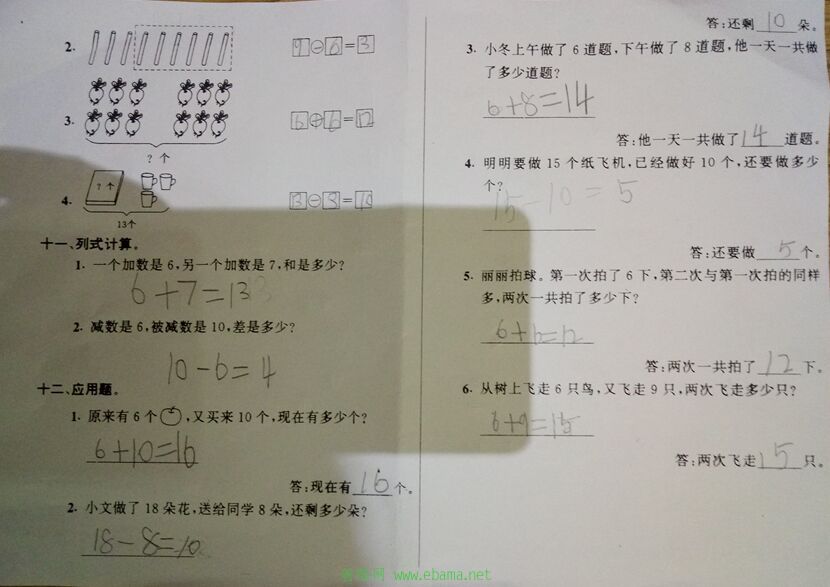 2. 9－6＝3
3. 6＋6＝12
? 个
4. ? 个 13－3＝10
13个
十一、列式计算。
1. 一个加数是 6,另一个加数是 7,和是多少?
6+7=13
2. 减数是 6,被减数是 10,差是多少?
10-6=4
十二、应用题。
1. 原来有 6 个 ,又买来 10 个,现在有多少个?
6+10=16
答:现在有 16 个。
2. 小文做了 18 朵花,送给同学 8 朵,还剩多少朵?
18-8=10
答:还剩 10 朵。
3. 小冬上午做了 6 道题,下午做了 8 道题,他一天一共做
了多少道题?
6+8=14
答:他一天一共做了 14 道题。
4. 明明要做 15 个纸飞机,已经做好 10 个,还要做多少
个?
15-10=5
答:还要做 5 个。
5. 丽丽拍球。第一次拍了 6 下,第二次与第一次拍的同样
多,两次一共拍了多少下?
6+6=12
答:两次一共拍了 12 下。
6. 从树上飞走 6 只鸟,又飞走 9 只,两次飞走多少只?
6+9=15
答:两次飞走 15 只。
www.ebama.net